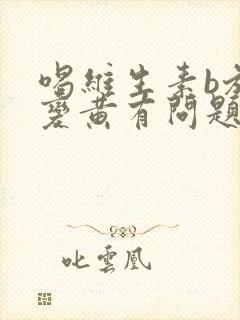 喝維生素b
變黃有問題
叱雲凰